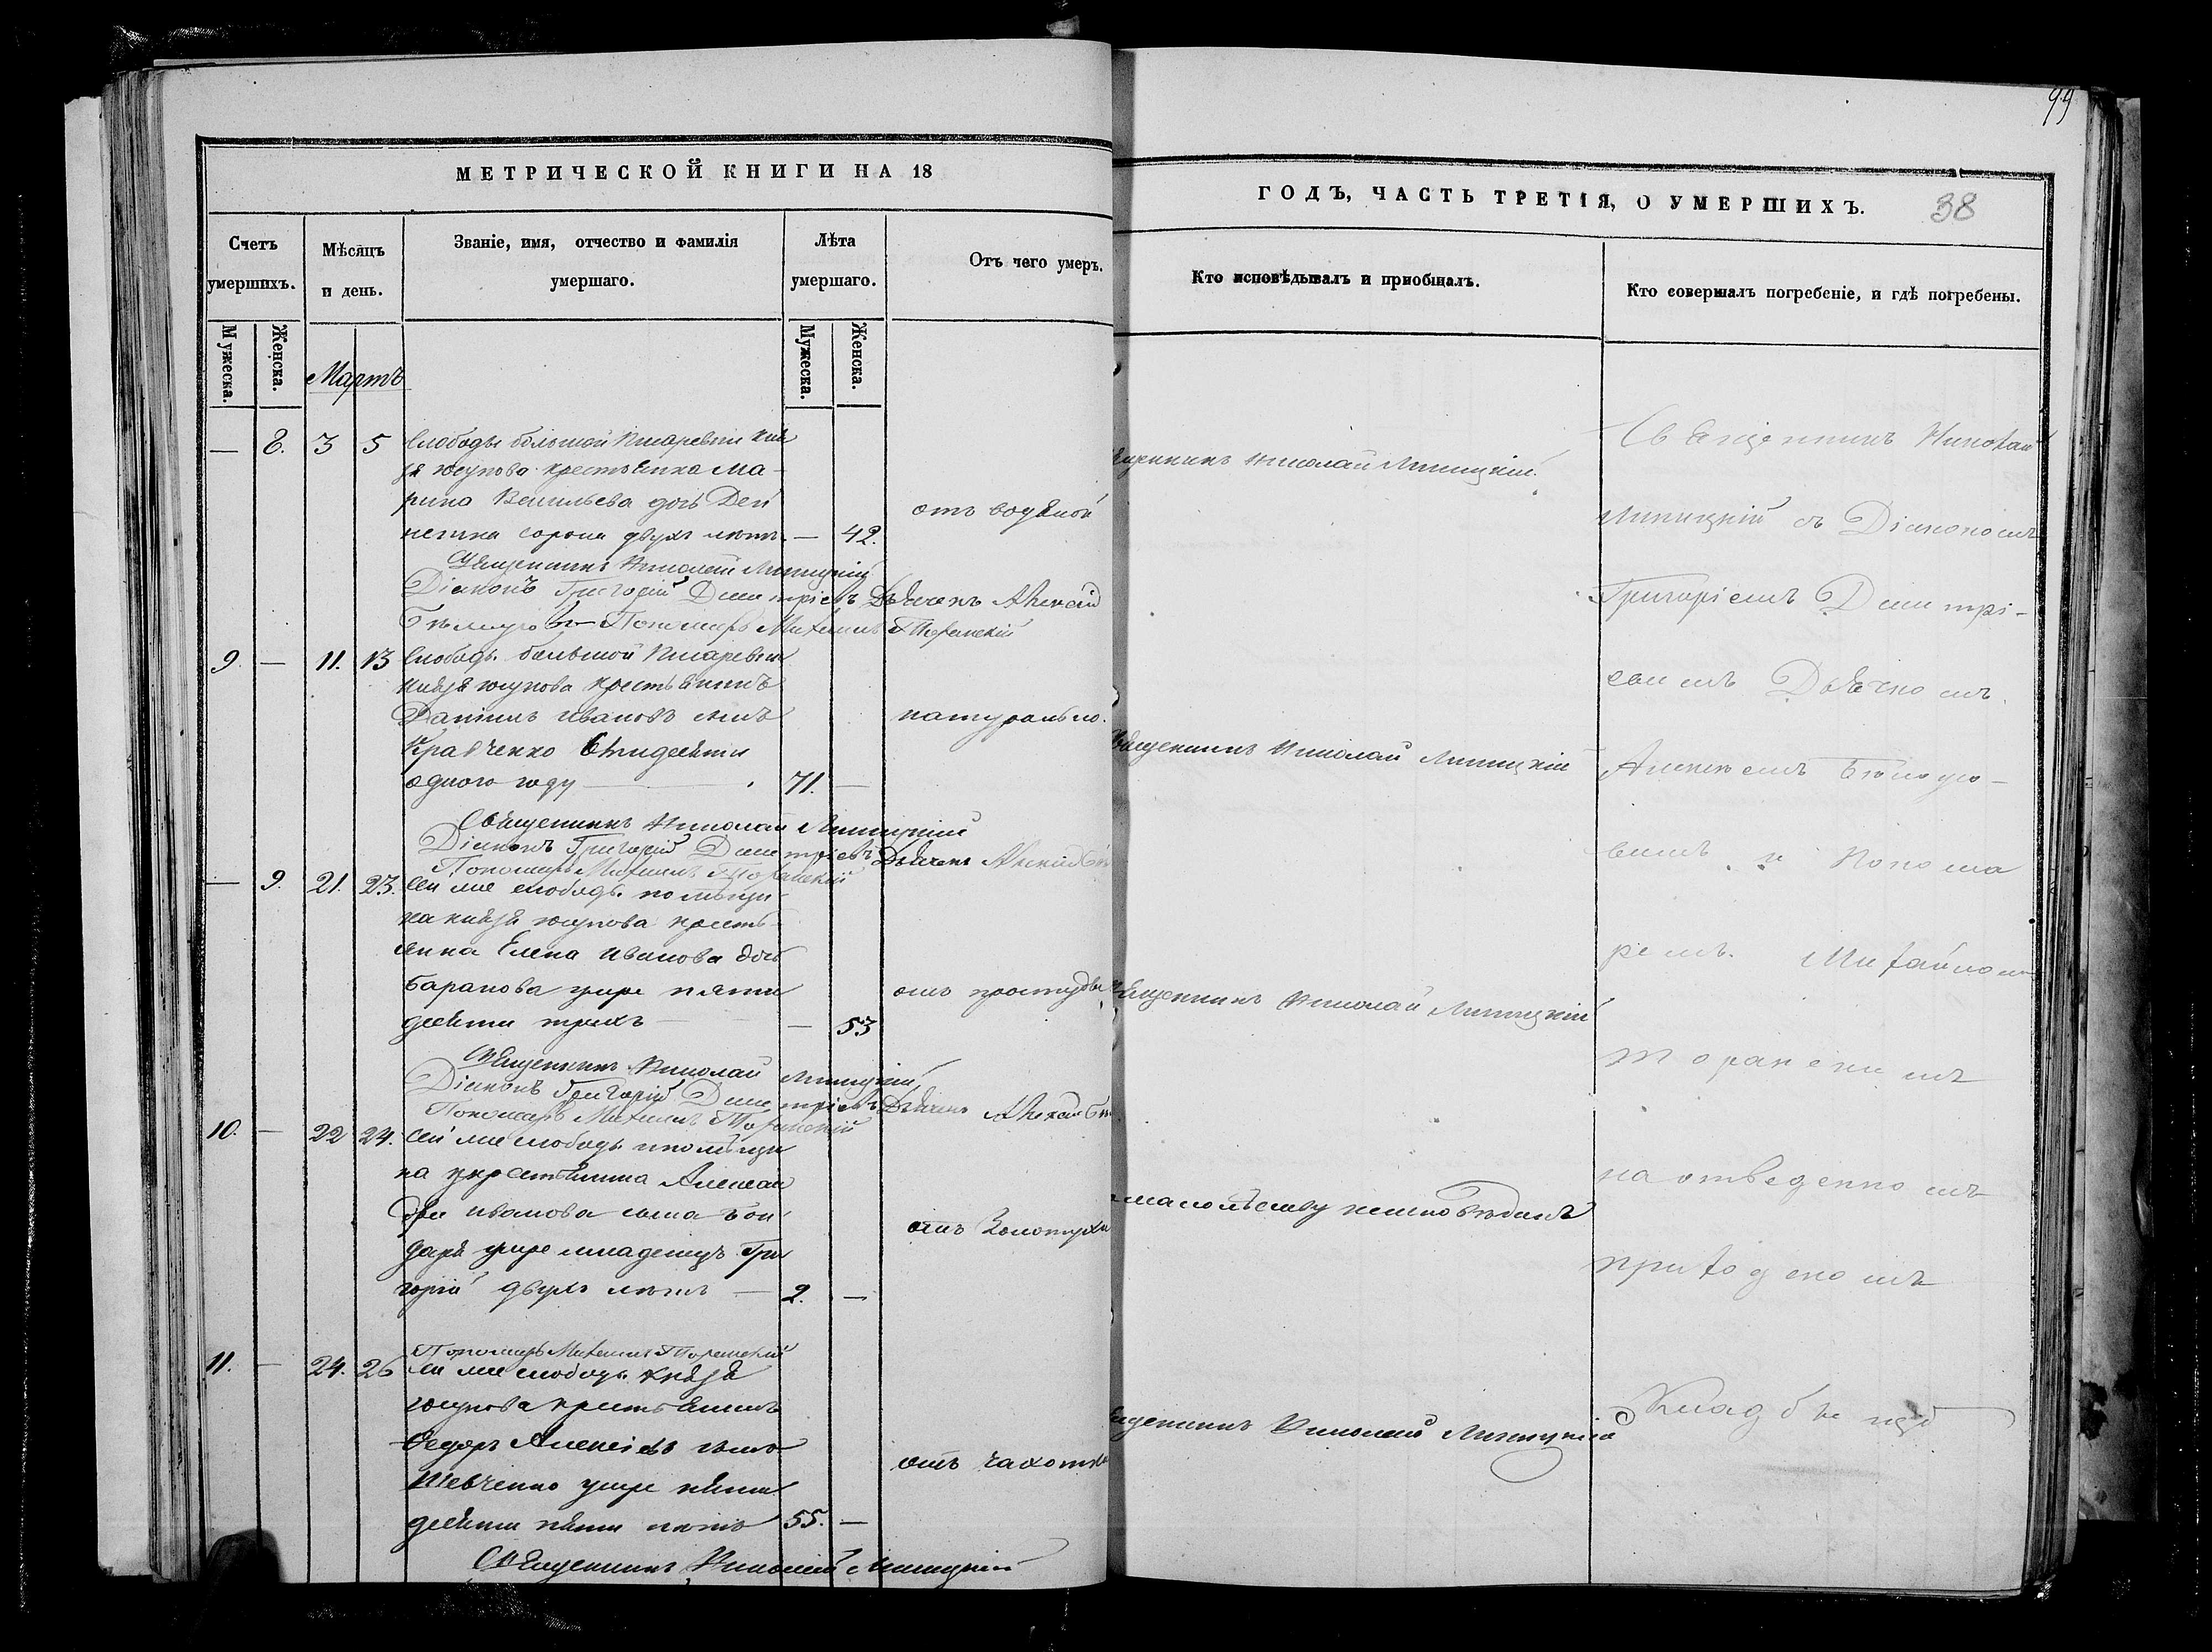 99
МЕТРИЧЕСКОЙ КНИГИ НА 18
ГОДЪ, ЧАСТЬ ТРЕТІЯ, О УМЕРШИХЪ.
38
Счетъ умершихъ.
Мѣсяцъ и день.
Званіе, имя, отчество и фамилія умершаго.
Лѣта умершаго.
Отъ чего умеръ.
Кто исповѣдывалъ и приобщалъ.
Кто совершалъ погребеніе, и гдѣ погребены.
Мужеска.
Женска.
Мужеска.
Женска.
Мартъ
— 8. 3 5
Слободы большой Писаревки кня
зя Юсупова крестьянка Ма-
рина Васильева дочь Дей
некина сорока двухъ лѣтъ — 42.
отъ водяной
Николай Липицкій
Священникъ Николай Липицкій
Діаконъ Григорій Димитріевъ Дьячекъ Алексѣй
Пономарь Михаилъ
9. — 11. 13
Слободы большой Писаревки
князя Юсупова крестьянинъ
Даніилъ Ивановъ сынъ
Кравченко семидесяти
одного году 71. —
натурально.
Священникъ Николай Липицкій
Священникъ Николай Липицкій
Діаконъ Григорій Димитріевъ Дьячекъ Алексѣй
Пономарь Михаилъ
— 9. 21. 23.
Сей же слободы помѣщи-
ка князя Юсупова кресть-
янка Елена Иванова дочь
Баранова умре пяти
десяти трехъ — 53
отъ простуды
Николай Липицкій
Священникъ Николай Липицкій
Діаконъ Григорій Димитріевъ Дьячекъ Алексѣй
Пономарь Михаилъ
10. — 22 24.
Сей же слободы помѣщи
ка крестьянина Алексан
дра Иванова сына Бон
даря умре младенецъ Гри
горій двухъ лѣтъ — 2. —
отъ Золотухи
малолѣтству неисповѣданъ
Пономарь Михаилъ
11. — 24. 26
сей же слободы князя
Юсупова крестьянинъ
Федоръ Алексѣевъ сынъ
Шевченко умре пяти
десяти пяти лѣтъ 55. —
отъ чахотки
Николай Липицкій
Священникъ Николай Липицкій
Священникъ Николай
Липицкій съ Діакономъ
Григоріемъ Димитрі-
евимъ Дьячкомъ
Алексѣемъ
вимъ и Понома
ремъ Михаиломъ
на отведенномъ
приходскомъ
Кладбищѣ